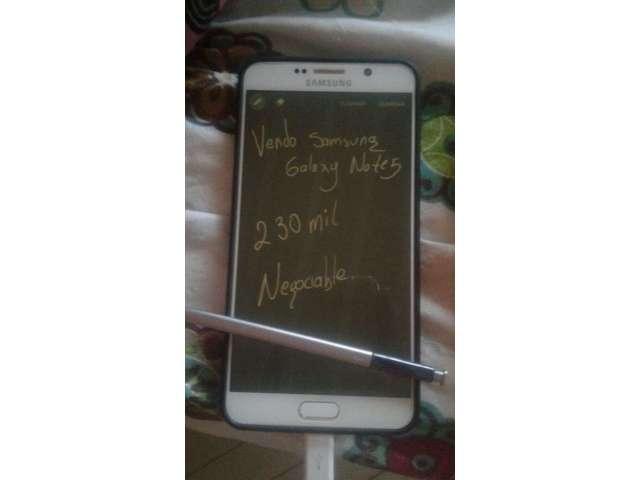 SAMSUNG
Vendo Samsung
Galaxy Note 5
230 mil
Negociable